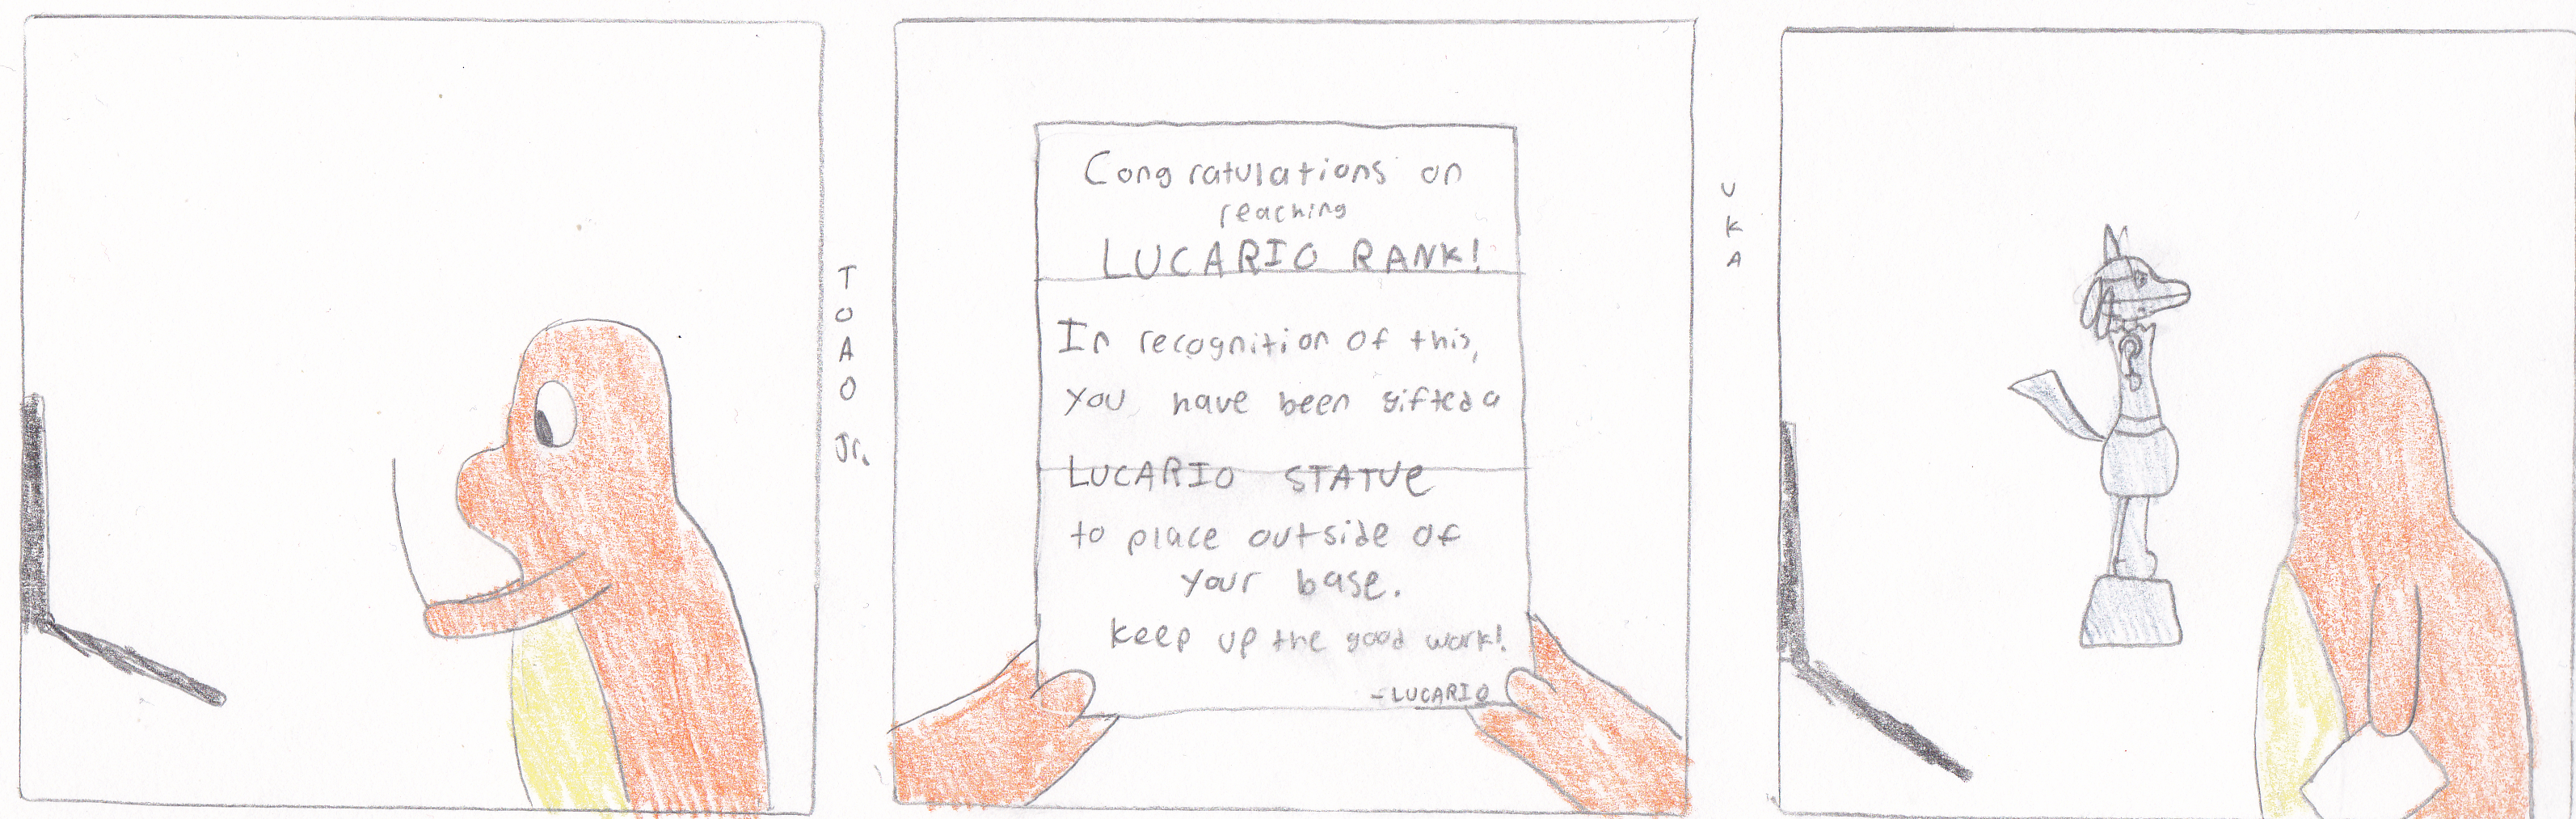 TOAO Jr.
Congratulations on
reaching
LUCARIO RANK!
In recognition of this,
you have been gifted a
LUCARIO STATUE
to place outside of
your base.
keep up the good work!
-LUCARIO
UKA